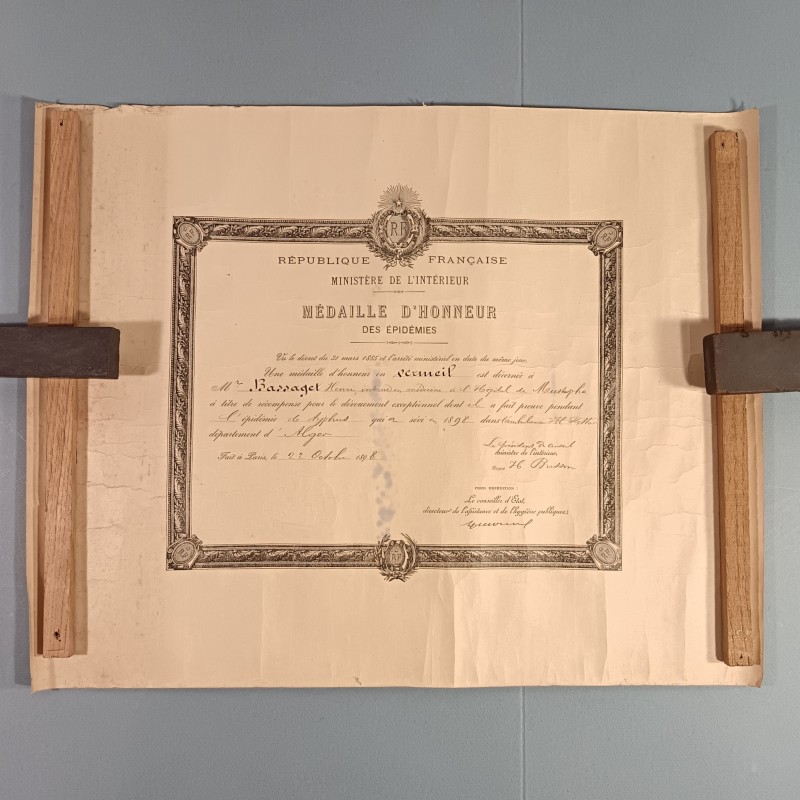 RF
RÉPUBLIQUE FRANÇAISE
MINISTÈRE DE L'INTÉRIEUR
MÉDAILLE D'HONNEUR
DES ÉPIDÉMIES
Vu le décret du 31 mars 1885 et l'arrêté ministériel en date du même jour,
Une médaille d'honneur en vermeil est décernée à
Mr Bassaget Henri, interne en médecine à l'Hôpital de Mustapha
à titre de récompense pour le dévouement exceptionnel dont il a fait preuve pendant
l'épidémie de typhus qui a sévi en 1898 dans
département d'Alger
Fait à Paris, le 22 Octobre 1898
Le président du conseil
ministre de l'intérieur,
Signé H Brisson
POUR EXPÉDITION :
Le conseiller d'État,
directeur de l'assistance et de l'hygiène publiques:
RF